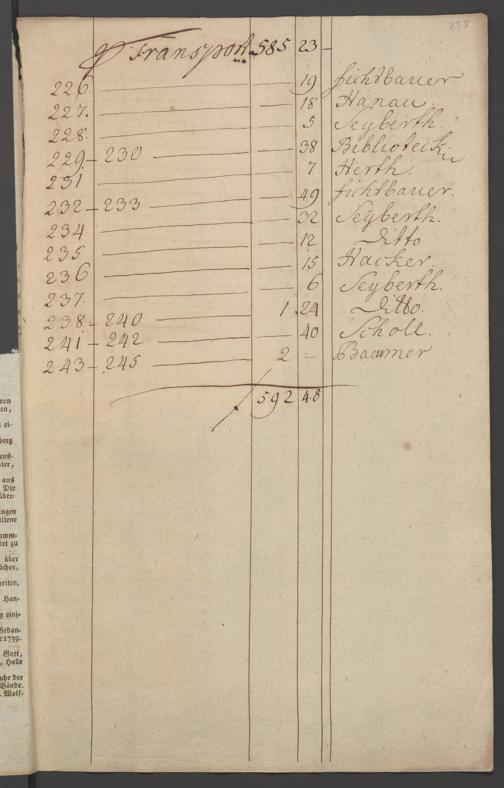 258
Transport. 585 23
226. 19 Fichtbauer
227. 18 Hanau.
228. 5 Seyberth.
229 - 230 38 Biblioteck.
231 7 Herth.
232 - 233 49 Fichtbauer.
234 32 Seyberth.
235 12 Ditto
236 15 Hacker.
237. 6 Seyberth.
238 - 240 1 24 Ditto.
241 - 242 40 Scholl.
243 - 245 2 - Baumer
592 48
von
en,
ei-
berg
ens-
ter,
auß
Die
über-
ingen
ltene
amm-
bet zu
über
ücher,
zeiten,
Han-
g eini-
Gedan-
1739.
Gott,
, Halle
che der
Bände.
Wolf-